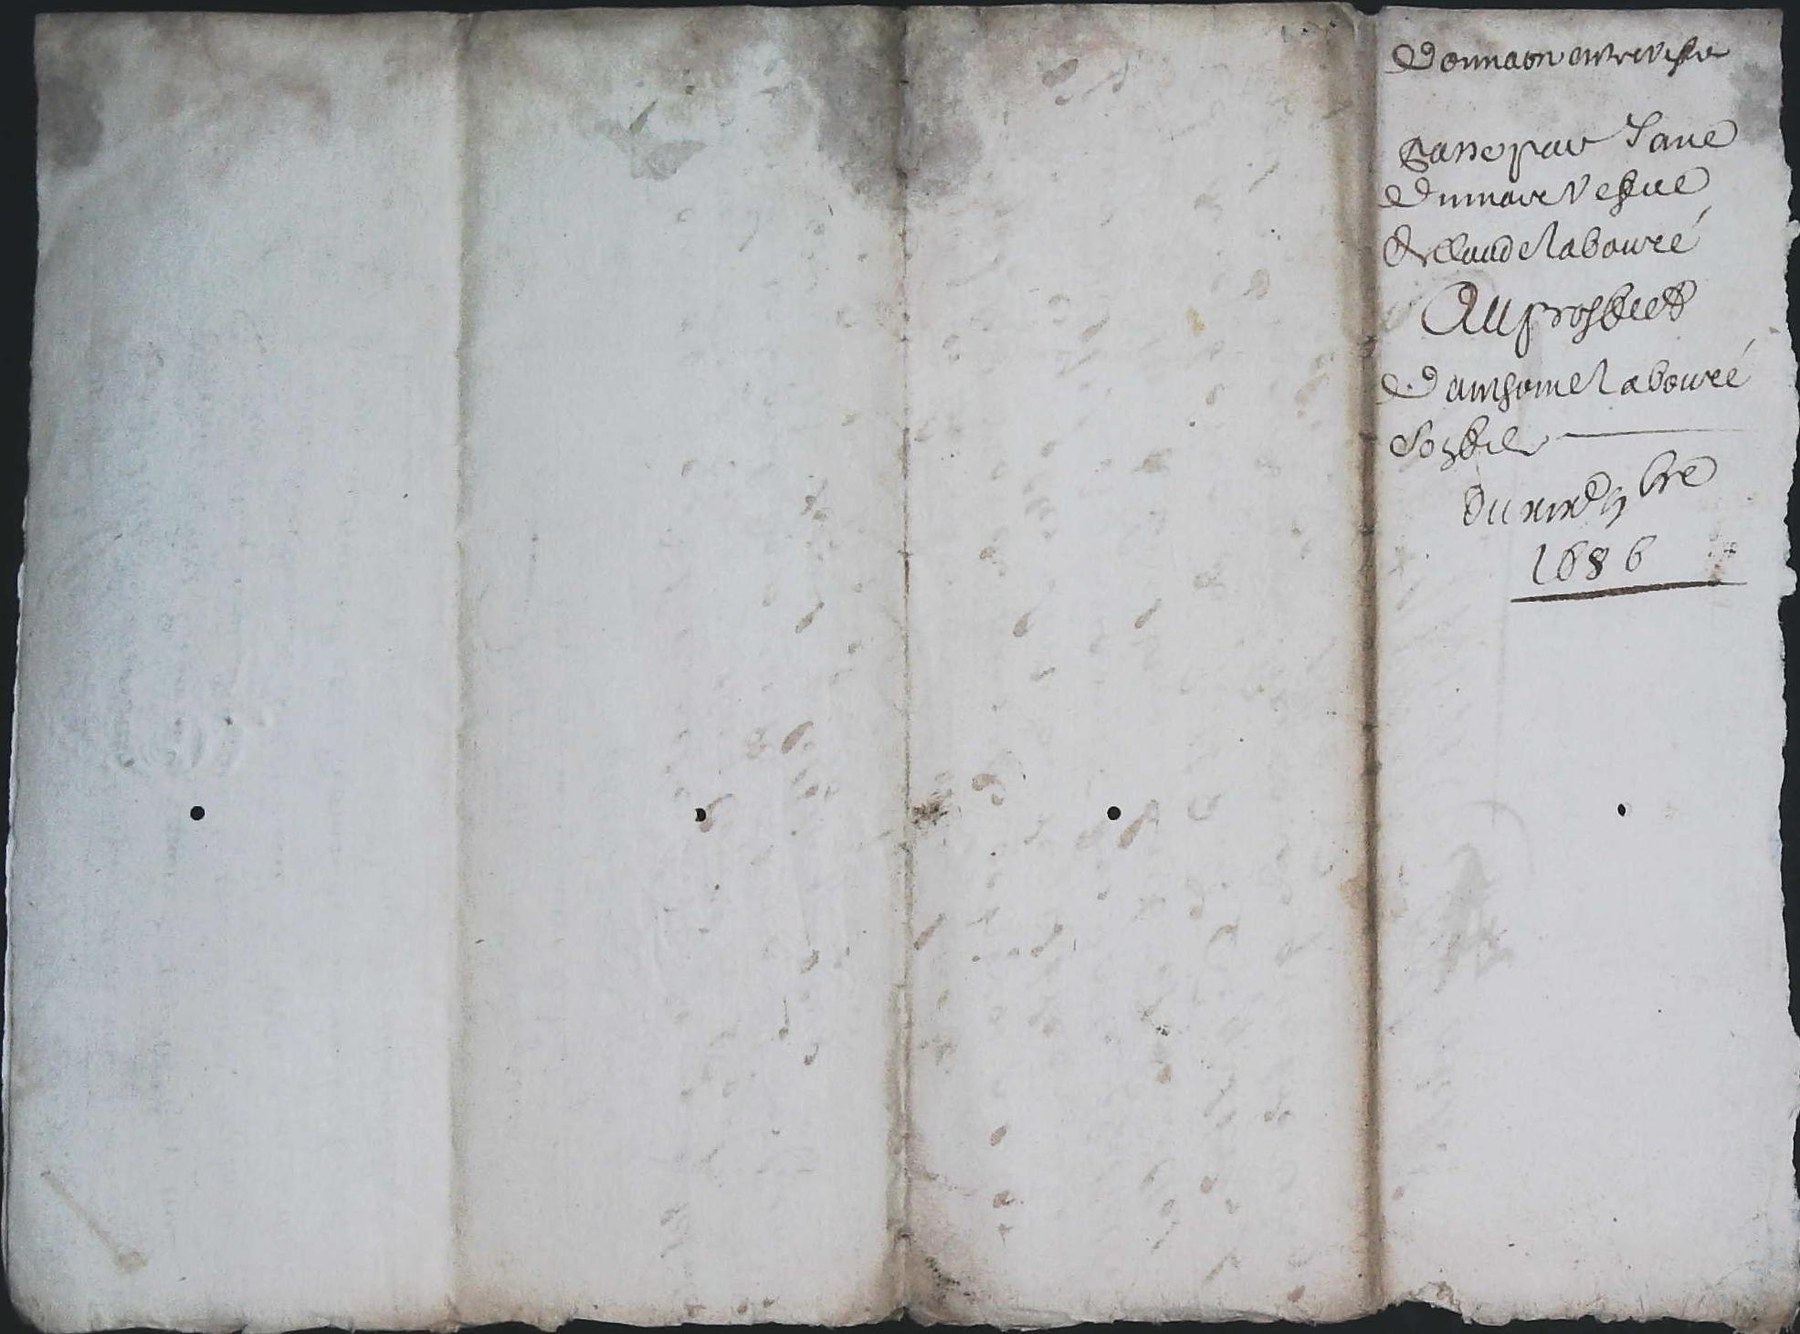 Donnaon entre vifs
passe par Jane
Dumare Vefve
de Claude Labouré
Au proffict
D'anthoine Labouré
son fils
Du xixe 9bre
1686